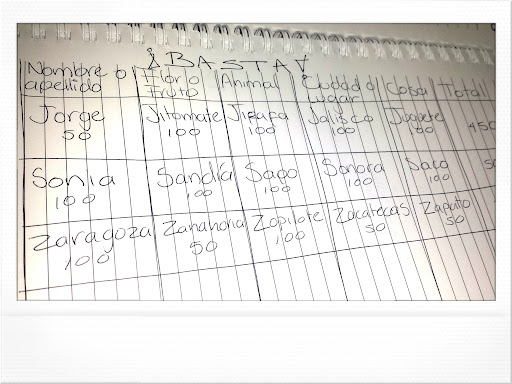 ¡BASTA!
Nombre o apellido Flor o Fruto Animal Ciudad o Lugar Cosa Total
Jorge Jitomate Jirafa Jalisco Juguete
50 100 100 100 100 450
Sonia Sandía Sapo Sonora Saco
100 100 100 100 100
Zaragoza Zanahoria Zopilote Zacatecas Zapato
100 50 100 50 50